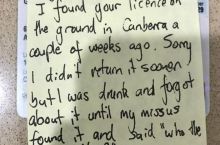 I found your licence on
the ground in Canberra a
couple of weeks ago. Sorry
I didn't return it sooner
but I was drunk and forgot
about it until my missus
found it and said "who the